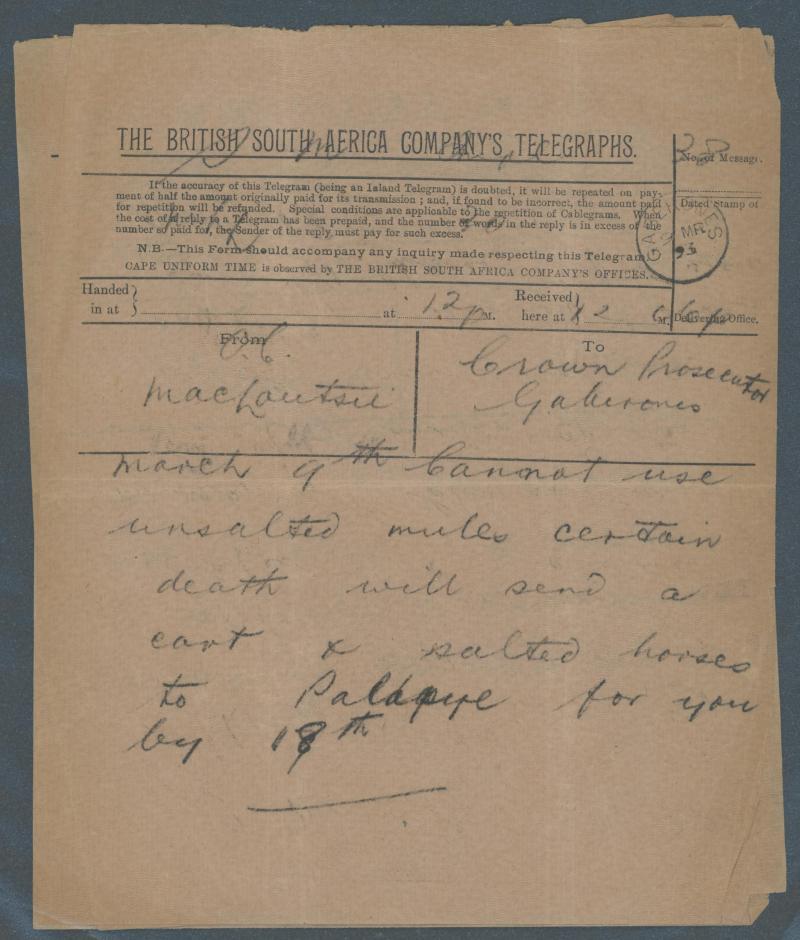 THE BRITISH SOUTH AFRICA COMPANY'S TELEGRAPHS.
38
No. of Message.
If the accuracy of this Telegram (being an Inland Telegram) is doubted, it will be repeated on pay-
ment of half the amount originally paid for its transmission ; and, if found to be incorrect, the amount paid
for repetition will be refunded. Special conditions are applicable to the repetition of Cablegrams. When
the cost of a reply to a Telegram has been prepaid, and the number of words in the reply is in excess of the
number so paid for, the Sender of the reply must pay for such excess.
N.B.—This Form should accompany any inquiry made respecting this Telegram.
CAPE UNIFORM TIME is observed by THE BRITISH SOUTH AFRICA COMPANY'S OFFICES.
Dated Stamp of
MR
93
Delivering Office.
Handed in at at 12 p M.
Received here at 12 M.
From
Macloutsie
To
Crown Prosecutor
Gaberones
March 9th Cannot use
unsalted mules certain
death will send a
cart & salted horses
to Palapye for you
by 18th